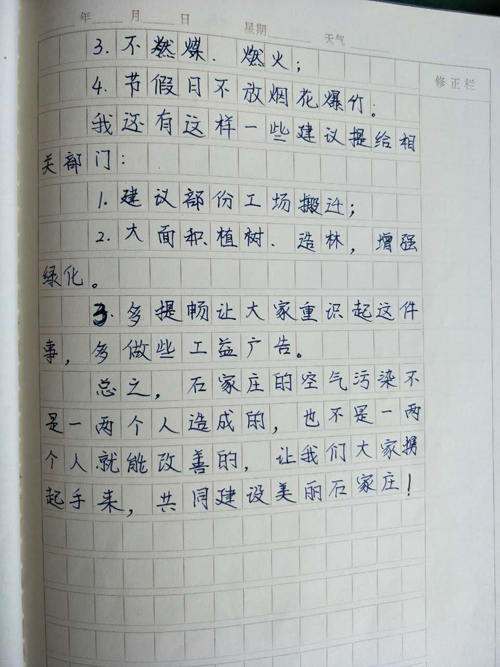 年 月 日 星期 天气
修正栏
3. 不燃煤．燃火；
4. 节假日不放烟花爆竹。
我还有这样一些建议提给相
关部门：
1. 建议部份工场搬迁；
2. 大面积植树．造林，增强
绿化。
3. 多提畅让大家重识起这件
事，多做些工益广告。
总之，石家庄的空气污染不
是一两个人造成的，也不是一两
个人就能改善的，让我们大家拐
起手来，共同建设美丽石家庄！